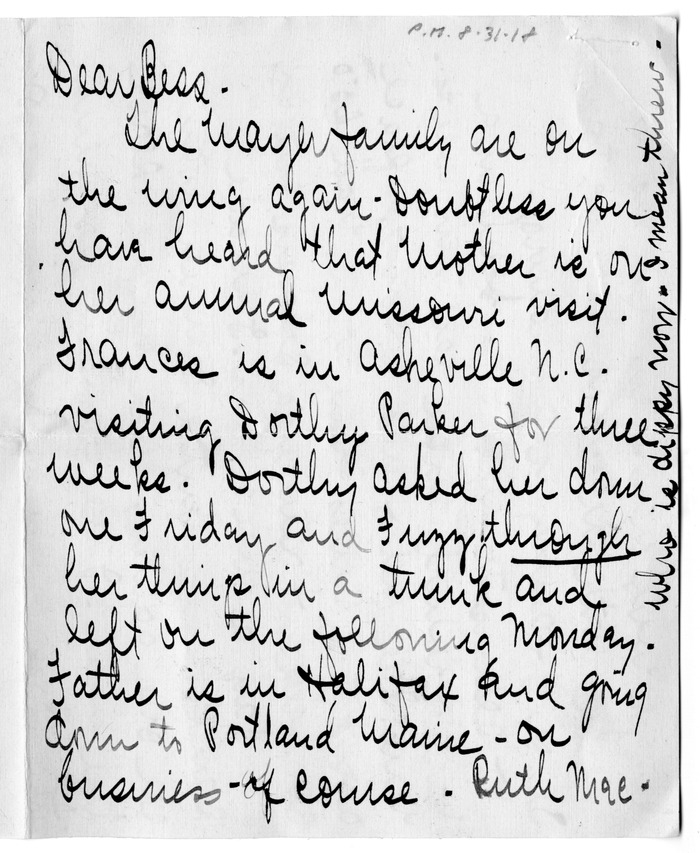 P.M. 8-31-18
Dear Bess.
The Mayer family are on
the wing again - Doubtless you
have heard that Mother is on
her annual Missouri visit.
Frances is in Asheville N.C.
visiting Dorthy Parker for three
weeks. Dorthy asked her down
one Friday and Fuzz through
her things in a trunk and
left on the following Monday.
Father is in Halifax and going
down to Portland Maine - on
business - of course. Ruth Mae.
who is dippy now - I mean threw.